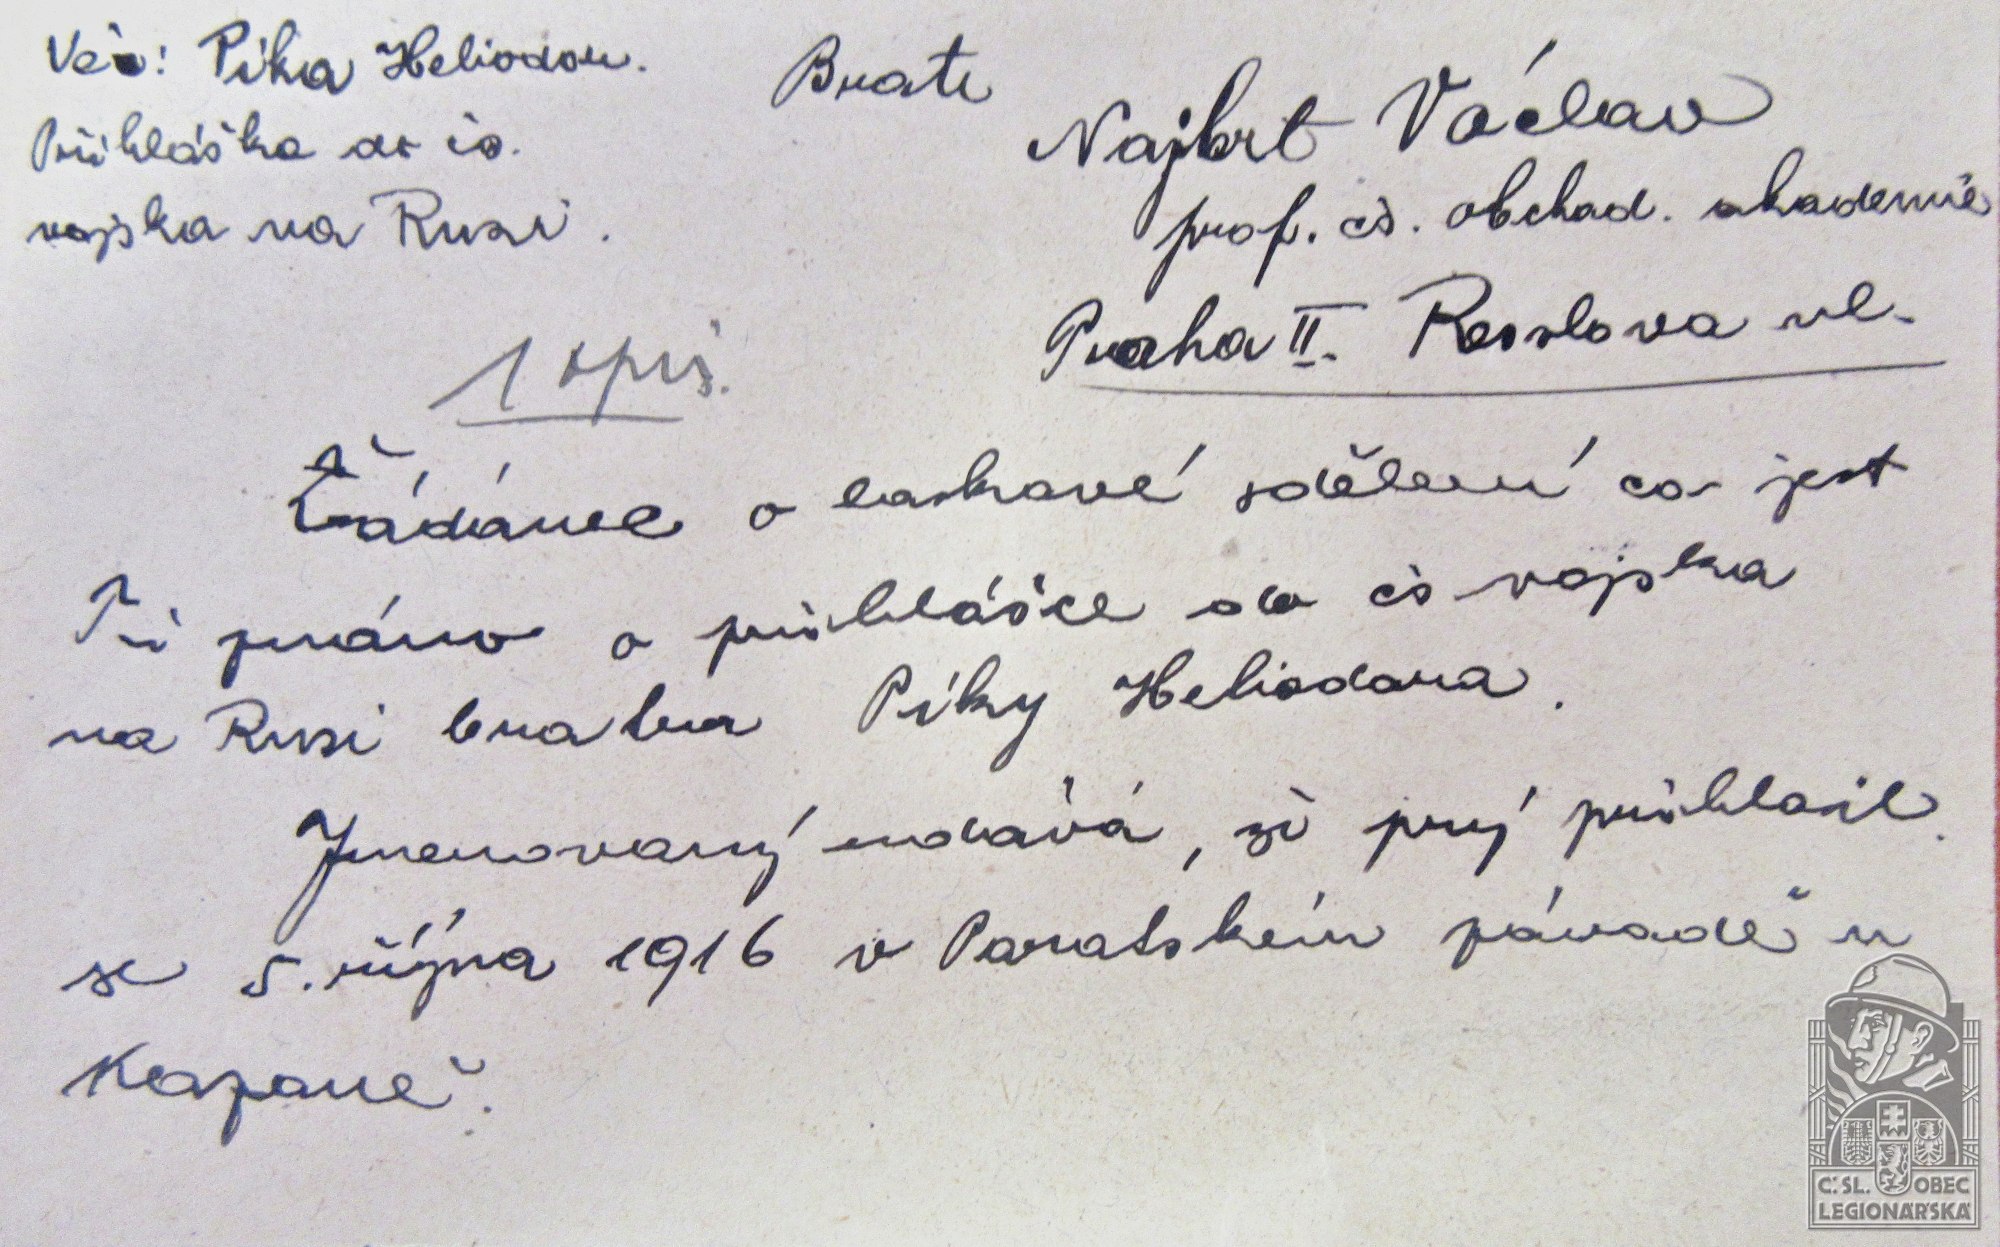 Věc: Píka Heliodor.
Přihláška do čs.
vojska na Rusi.
Bratr
Najbrt Václav
prof. čs. obchod. akademie
Praha II. Resslova ul.
1 opis.
Žádáme o laskavé sdělení co jest
Ti známo o přihlášce do čs vojska
na Rusi bratra Píky Heliodora.
Jmenovaný udává, že prý přihlásil
se 5. října 1916 v Paratském závodě u
Kazaně.
Č.SL. OBEC
LEGIONÁŘSKÁ